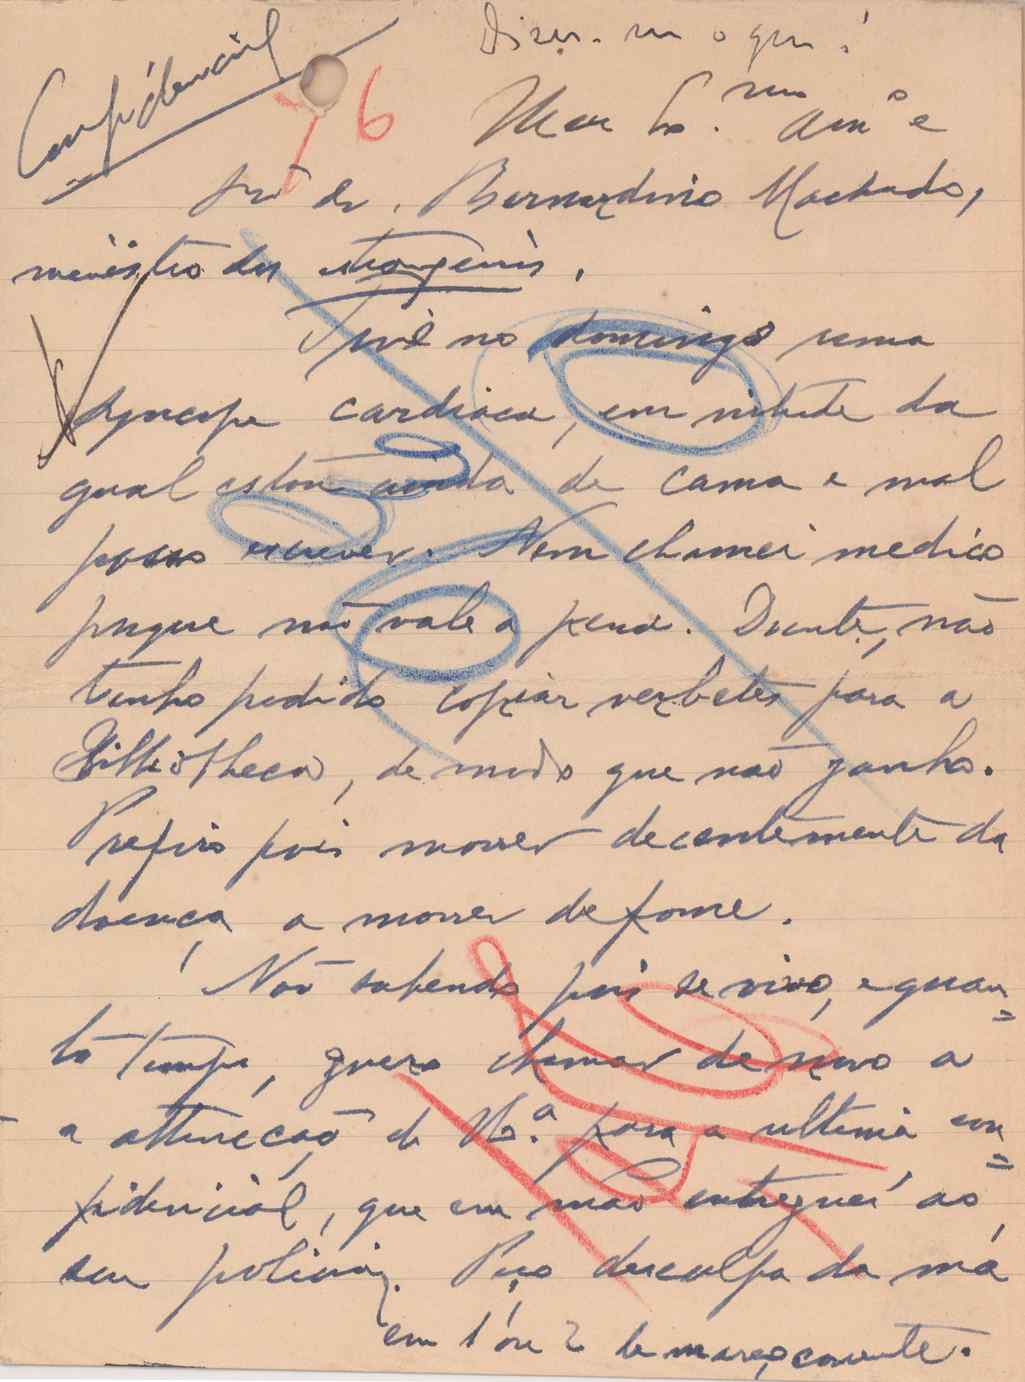 Confidencial
76
Meu Ex.mo Am.o e
Snr. dr. Bernardino Machado,
ministro dos estrangeiros.
Tive no domingo uma
syncope cardiaca, em virtude da
qual estou ainda de cama e mal
posso escrever. Nem chamei medico
porque não vale a pena. Doente, não
tenho podido copiar verbetes para a
Bibliotheca, de modo que não ganho.
Prefiro pois morrer decentemente da
doença a morrer de fome.
Não sabendo pois se vivo, e quan=
to tempo, quero chamar de novo a
a attenção de V. Ex.ª para a ultima con=
fidencial, que em mão entreguei ao
seu policia. Peço desculpa da má
em 1 ou 2 de março corrente.